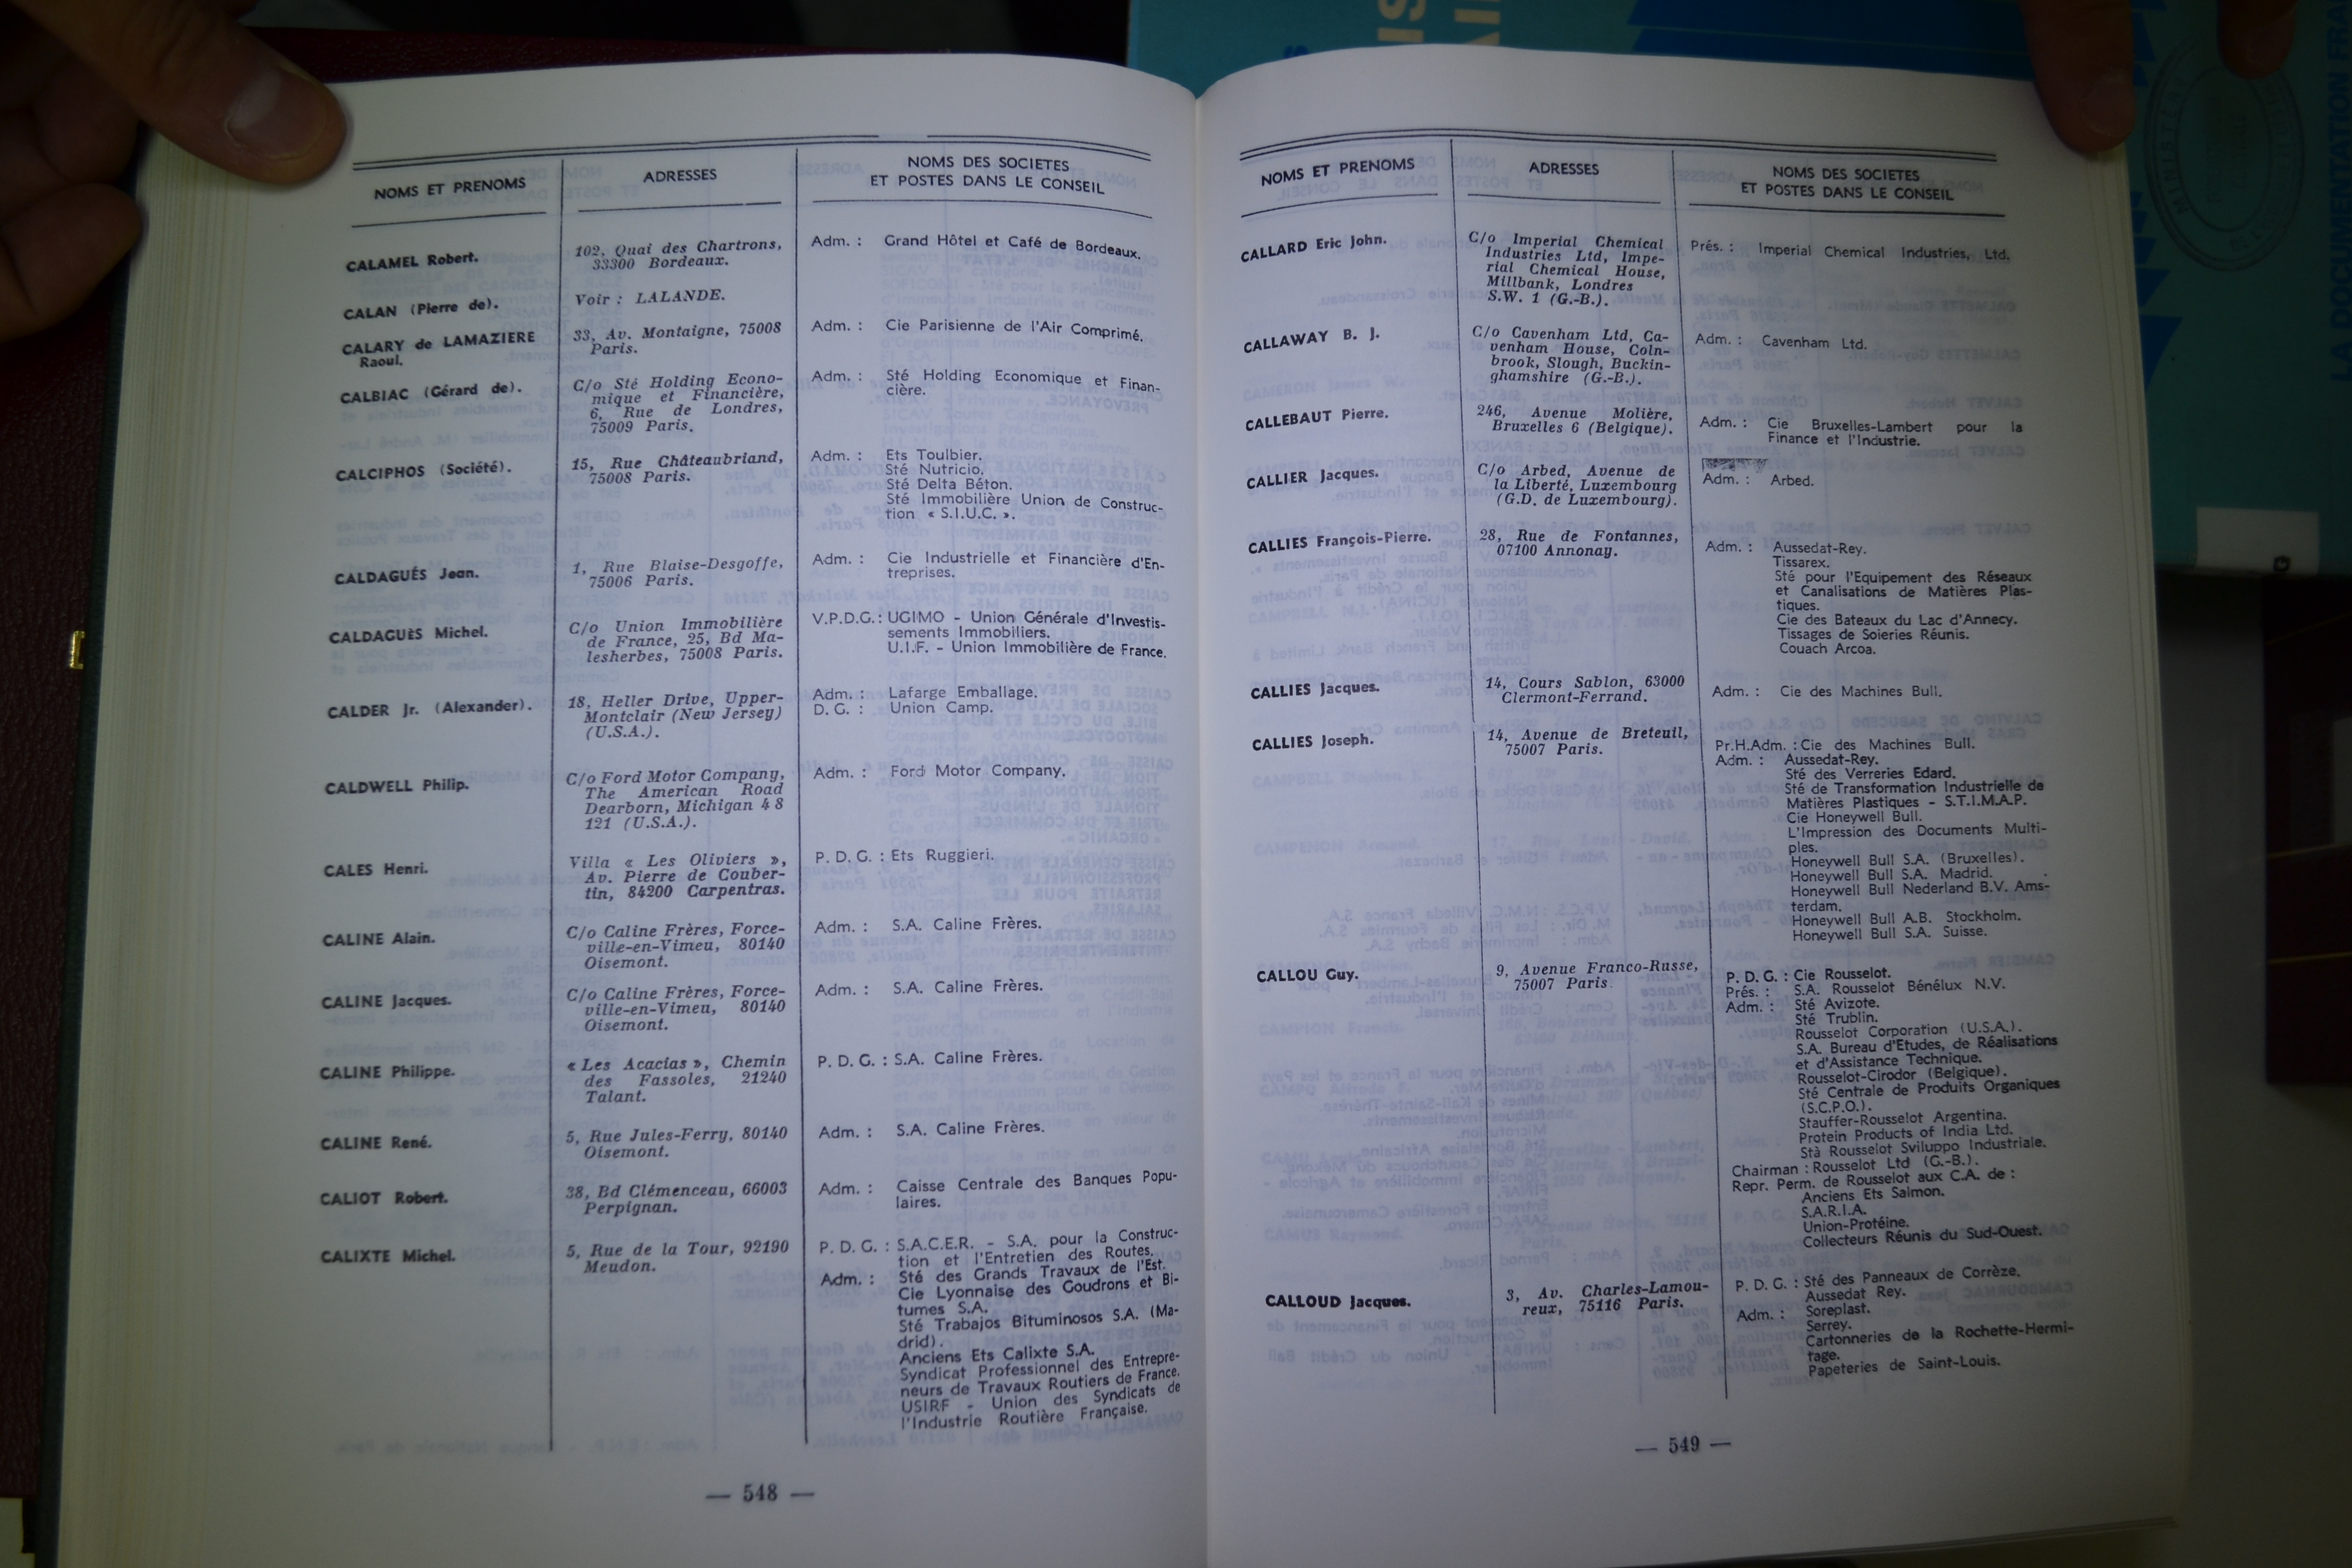 NOMS ET PRENOMS
ADRESSES
NOMS DES SOCIETES
ET POSTES DANS LE CONSEIL
CALAMEL Robert.
102, Quai des Chartrons,
33300 Bordeaux.
Adm. : Grand Hôtel et Café de Bordeaux.
CALAN (Pierre de).
Voir : LALANDE.
CALARY de LAMAZIERE
Raoul.
33, Av. Montaigne, 75008
Paris.
Adm. : Cie Parisienne de l'Air Comprimé.
CALBIAC (Gérard de).
C/o Sté Holding Econo-
mique et Financière,
6, Rue de Londres,
75009 Paris.
Adm. : Sté Holding Economique et Finan-
cière.
CALCIPHOS (Société).
15, Rue Châteaubriand,
75008 Paris.
Adm. : Ets Toulbier.
Sté Nutricio.
Sté Delta Béton.
Sté Immobilière Union de Construc-
tion « S.I.U.C. ».
CALDAGUÉS Jean.
1, Rue Blaise-Desgoffe,
75006 Paris.
Adm. : Cie Industrielle et Financière d'En-
treprises.
CALDAGUÈS Michel.
C/o Union Immobilière
de France, 25, Bd Ma-
lesherbes, 75008 Paris.
V.P.D.G. : UGIMO - Union Générale d'Investis-
sements Immobiliers.
U.I.F. - Union Immobilière de France.
CALDER Jr. (Alexander).
18, Heller Drive, Upper-
Montclair (New Jersey)
(U.S.A.).
Adm. : Lafarge Emballage.
D. G. : Union Camp.
CALDWELL Philip.
C/o Ford Motor Company,
The American Road
Dearborn, Michigan 48
121 (U.S.A.).
Adm. : Ford Motor Company.
CALES Henri.
Villa « Les Oliviers »,
Av. Pierre de Couber-
tin, 84200 Carpentras.
P. D. G. : Ets Ruggieri.
CALINE Alain.
C/o Caline Frères, Force-
ville-en-Vimeu, 80140
Oisemont.
Adm. : S.A. Caline Frères.
CALINE Jacques.
C/o Caline Frères, Force-
ville-en-Vimeu, 80140
Oisemont.
Adm. : S.A. Caline Frères.
CALINE Philippe.
« Les Acacias », Chemin
des Fassoles, 21240
Talant.
P. D. G. : S.A. Caline Frères.
CALINE René.
5, Rue Jules-Ferry, 80140
Oisemont.
Adm. : S.A. Caline Frères.
CALIOT Robert.
38, Bd Clémenceau, 66003
Perpignan.
Adm. : Caisse Centrale des Banques Popu-
laires.
CALIXTE Michel.
5, Rue de la Tour, 92190
Meudon.
P. D. G. : S.A.C.E.R. - S.A. pour la Construc-
tion et l'Entretien des Routes.
Adm. : Sté des Grands Travaux de l'Est.
Cie Lyonnaise des Goudrons et Bi-
tumes S.A.
Sté Trabajos Bituminosos S.A. (Ma-
drid).
Anciens Ets Calixte S.A.
Syndicat Professionnel des Entrepre-
neurs de Travaux Routiers de France.
USIRF - Union des Syndicats de
l'Industrie Routière Française.
— 548 —
NOMS ET PRENOMS
ADRESSES
NOMS DES SOCIETES
ET POSTES DANS LE CONSEIL
CALLARD Eric John.
C/o Imperial Chemical
Industries Ltd, Impe-
rial Chemical House,
Millbank, Londres
S.W. 1 (G.-B.).
Prés. : Imperial Chemical Industries, Ltd.
CALLAWAY B. J.
C/o Cavenham Ltd, Ca-
venham House, Coln-
brook, Slough, Buckin-
ghamshire (G.-B.).
Adm. : Cavenham Ltd.
CALLEBAUT Pierre.
246, Avenue Molière,
Bruxelles 6 (Belgique).
Adm. : Cie Bruxelles-Lambert pour la
Finance et l'Industrie.
CALLIER Jacques.
C/o Arbed, Avenue de
la Liberté, Luxembourg
(G.D. de Luxembourg).
Adm. : Arbed.
CALLIES François-Pierre.
28, Rue de Fontannes,
07100 Annonay.
Adm. : Aussedat-Rey.
Tissarex.
Sté pour l'Equipement des Réseaux
et Canalisations de Matières Plas-
tiques.
Cie des Bateaux du Lac d'Annecy.
Tissages de Soieries Réunis.
Couach Arcoa.
CALLIES Jacques.
14, Cours Sablon, 63000
Clermont-Ferrand.
Adm. : Cie des Machines Bull.
CALLIES Joseph.
14, Avenue de Breteuil,
75007 Paris.
Pr.H.Adm. : Cie des Machines Bull.
Adm. : Aussedat-Rey.
Sté des Verreries Edard.
Sté de Transformation Industrielle de
Matières Plastiques - S.T.I.M.A.P.
Cie Honeywell Bull.
L'Impression des Documents Multi-
ples.
Honeywell Bull S.A. (Bruxelles).
Honeywell Bull S.A. Madrid.
Honeywell Bull Nederland B.V. Ams-
terdam.
Honeywell Bull A.B. Stockholm.
Honeywell Bull S.A. Suisse.
CALLOU Guy.
9, Avenue Franco-Russe,
75007 Paris.
P. D. G. : Cie Rousselot.
Prés. : S.A. Rousselot Bénélux N.V.
Adm. : Sté Avizote.
Sté Trublin.
Rousselot Corporation (U.S.A.).
S.A. Bureau d'Etudes, de Réalisations
et d'Assistance Technique.
Rousselot-Cirodor (Belgique).
Sté Centrale de Produits Organiques
(S.C.P.O.).
Stauffer-Rousselot Argentina.
Protein Products of India Ltd.
Stà Rousselot Sviluppo Industriale.
Chairman : Rousselot Ltd (G.-B.).
Repr. Perm. de Rousselot aux C.A. de :
Anciens Ets Salmon.
S.A.R.I.A.
Union-Protéine.
Collecteurs Réunis du Sud-Ouest.
CALLOUD Jacques.
3, Av. Charles-Lamou-
reux, 75116 Paris.
P. D. G. : Sté des Panneaux de Corrèze.
Aussedat Rey.
Adm. : Soreplast.
Serrey.
Cartonneries de la Rochette-Hermi-
tage.
Papeteries de Saint-Louis.
— 549 —
LA DOCUMENTATION FRA